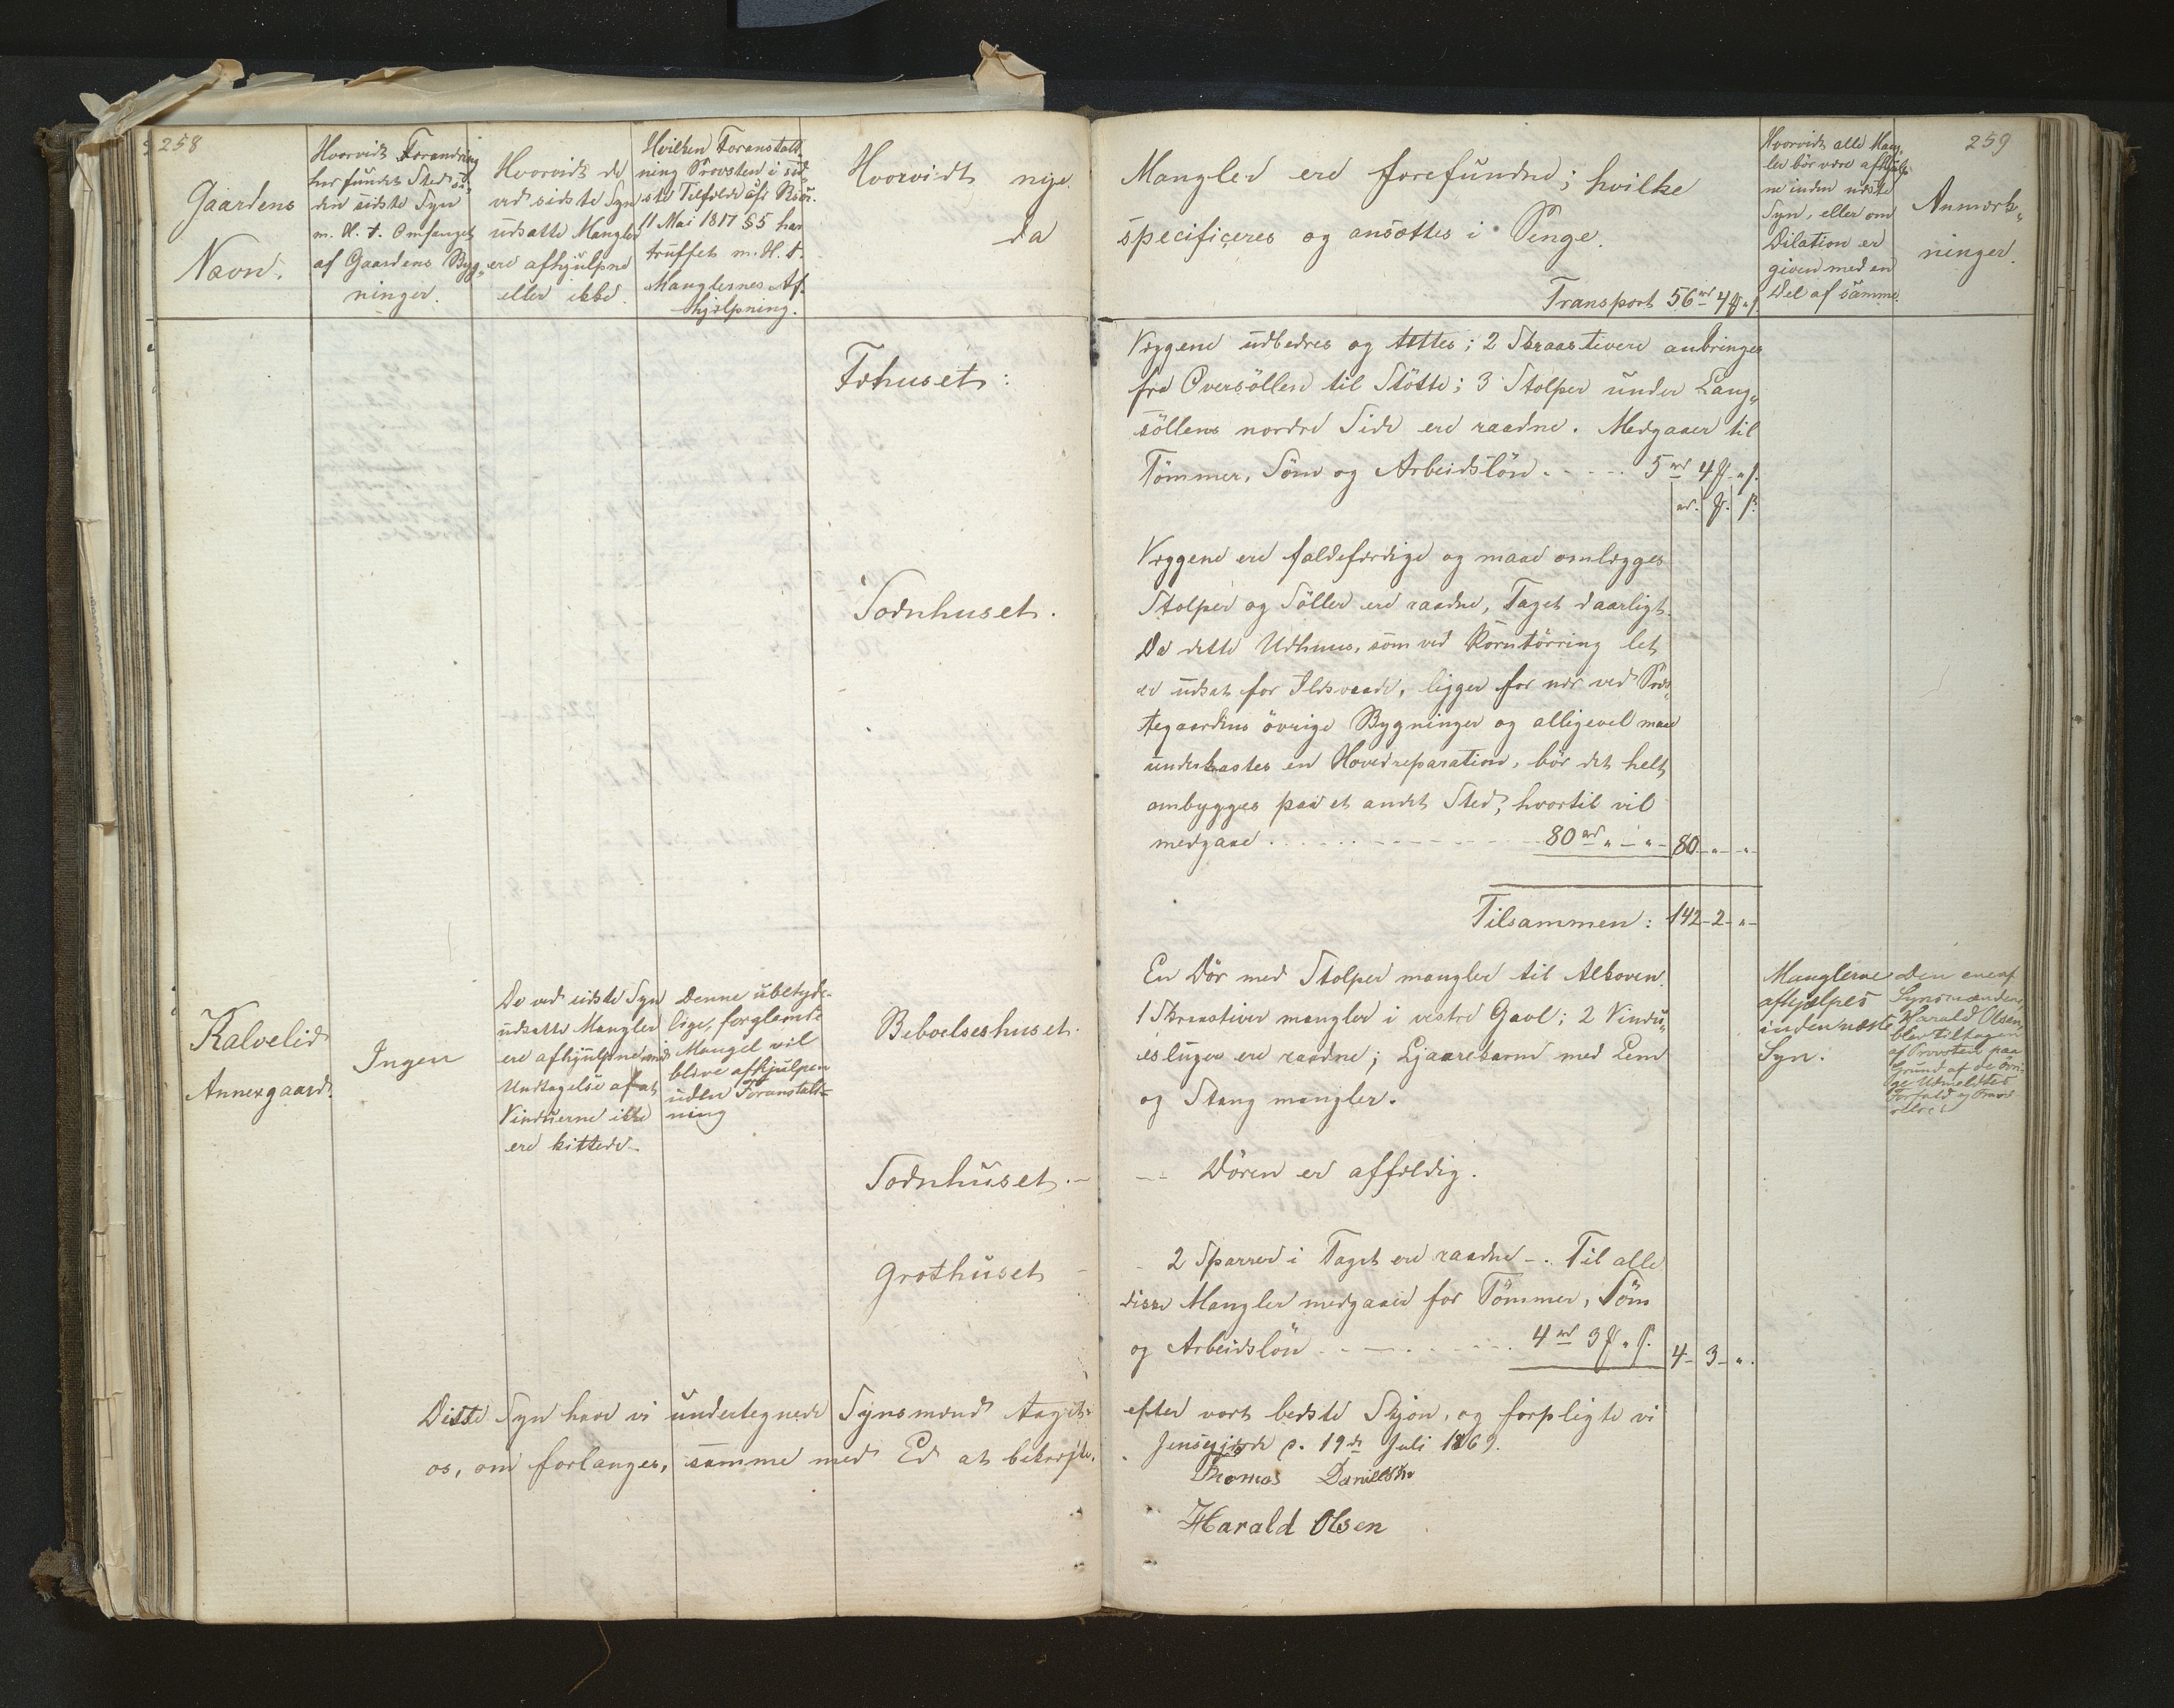 258
Gaardens
Navn.
Hvorvidt Forandring
har fundet Sted si„
den sidste Syn
m. H. t. Omfanget
af Gaardens Byg„
ninger.
Hvorvidt de
ved sidste Syn
udsatte Mangler
ere afhjulpne
eller ikke.
Hvilken Foranstalt„
ning Provsten i sid„
ste Tilfælde efter
11 Mai 1817 §5 har
truffet m. H. t.
Manglernes Af„
hjælpning.
Hvorvidt nye
da
Fæhuset:
Sodnhuset.
Kalvelid
Annexgaard.
Ingen
De ved sidste Syn
udsatte Mangler
ere afhjulpne med
Undtagelse af at
Vinduerne ikke
ere kittede
Denne ubetyde-
lige, forglemte
Mangel vil
blive afhjulpen
uden Foranstalt-
ning
Beboelseshuset.
Sodnhuset.-
Grothuset -
Dette Syn have vi undertegnede Synsmænd taget
os, om forlanges, samme med Ed at bekræfte.
259
Mangler ere forefundne; hvilke
specificeres og ansættes i Penge.
Transport 56 4
Hvorvidt alle Mang„
ler bør være afhjulp„
ne inden næste
Syn, eller om
Dilation er
given med en
Del af samme.
Anmærk„
ninger.
Væggene udbedres og tættes; 2 Skraastivere anbringes
fra Oversöllen til Stötte; 3 Stolper under Lang„
söllens nordre Side ere raadne. Medgaaer til
Tömmer, Söm og Arbeidslön. - - - - 5 4
Væggene ere faldefærdige og maae omlægges
Stolper og Söller ere raadne, Taget daarligt.
Da dette Udhuus, som ved Korntörring let
er udsat for Ildsvaade, ligger for nær ved Præs„
tegaardens övrige Bygninger og alligevel maae
underkastes en Hovedreparation, bör det helt
ombygges paa et andet Sted, hvortil vil
medgaae . . . . . - - - - - - 80 „ - „ - 80 - „ - „ -
Tilsammen: 142 - 2 - „ -
En Dör med Stolper mangler til Alkoven.
1 Skraastiver mangler i vestre Gavl; 2 Vindu„
esluger ere raadne; Ljaarekarm med Lem
og Stang mangler.
-- Dören er affældig.
- 2 Sparrer i Taget ere raadne -. Til alle
disse Mangler medgaaer for Tömmer, Söm
og Arbeidslön - - - - - - 4 3 „ 4 - 3 - „ .
Manglerne
afhjælpes
inden næste
Syn.
Den ene af
Synsmændene,
Harald Olsen,
blev tiltagen
af Provsten paa
Grund af de övri-
ge Udmeldtes
Forfald
efter vort bedste Skjön, og forpligte vi
19de Juli 1869.
Thomas Danielsen
Harald Olsen